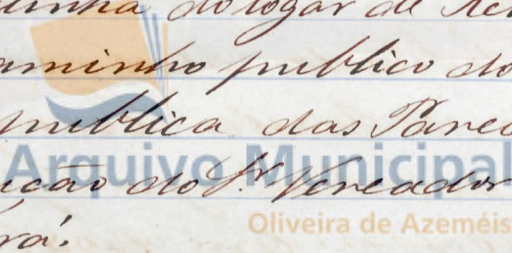 do logar de
caminho publico do
publica das
do Sr. Vereador
rá.
Arquivo Municipal
Oliveira de Azeméis